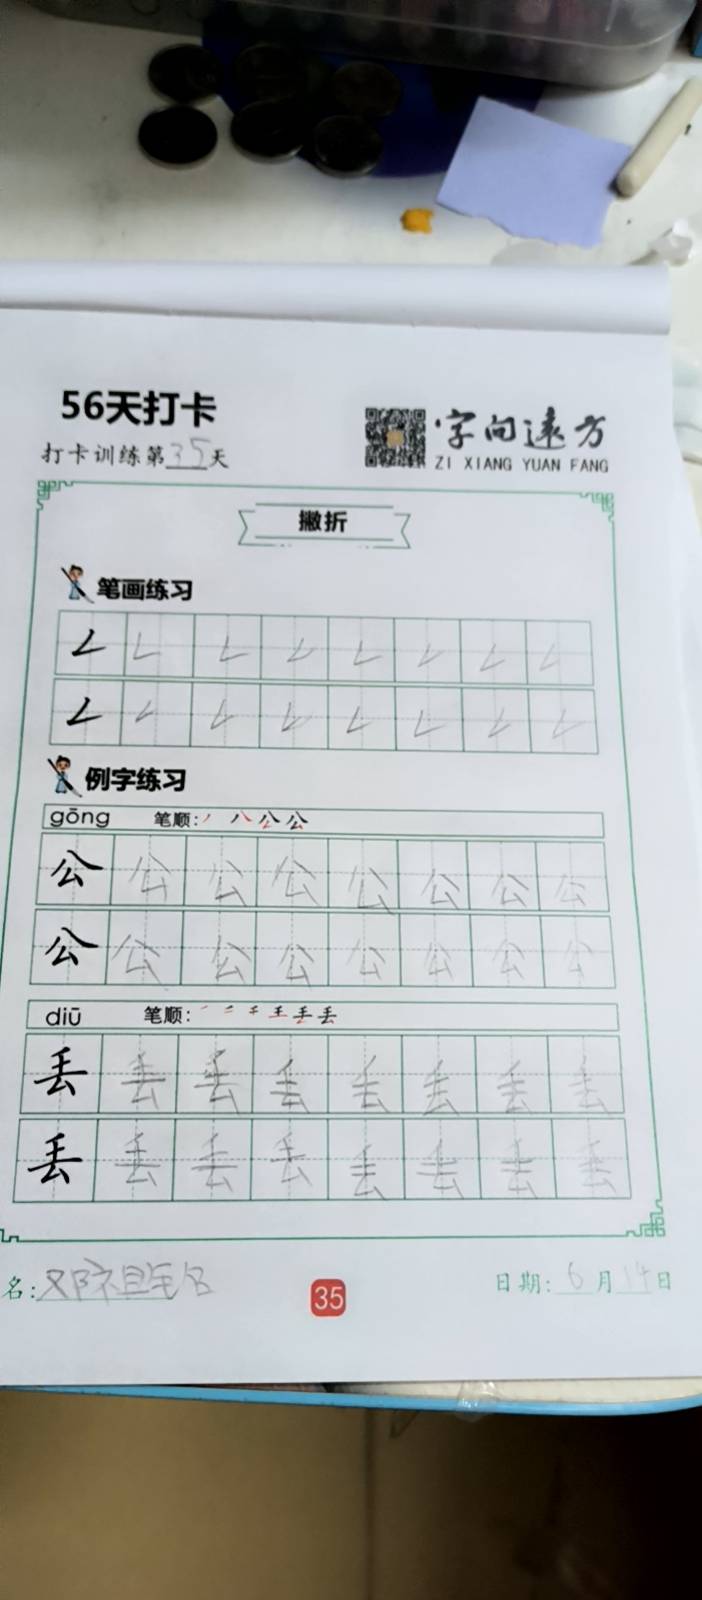 56天打卡
打卡训练第35天
字向远方
ZI XIANG YUAN FANG
撇折
笔画练习
例字练习
gōng 笔顺:
公 公 公 公 公 公 公 公
公 公 公 公 公 公 公 公
diū 笔顺:
丢 丢 丢 丢 丢 丢 丢 丢
丢 丢 丢 丢 丢 丢 丢 丢
名:邓祖
35
日期:6月14日